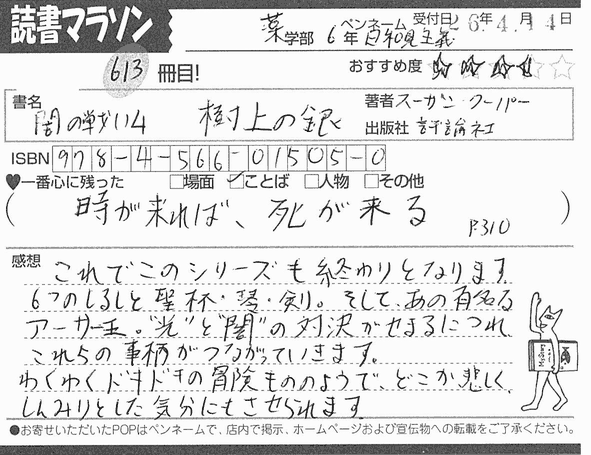 読書マラソン
薬学部 6年 ペンネーム 日和見主義 受付日 26年4月14日
613 冊目! おすすめ度 ☆☆☆☆☆
書名 闇の戦い4 樹上の銀 著者 スーザン・クーパー
出版社 評論社
ISBN 978-4-566-01505-0
♥一番心に残った □場面 ☑ことば □人物 □その他
( 時が来れば、死が来る P310 )
感想 これでこのシリーズも終わりとなります。
6つのしるしと聖杯・琴・剣。そして、あの有名な
アーサー王。"光"と"闇"の対決がせまるにつれ
これらの事柄がつながっていきます。
わくわくドキドキの冒険もののようで、どこか悲しく、
しんみりとした気分にもさせられます。
Mystery
●お寄せいただいたPOPはペンネームで、店内で掲示、ホームページおよび宣伝物への転載をご了承ください。